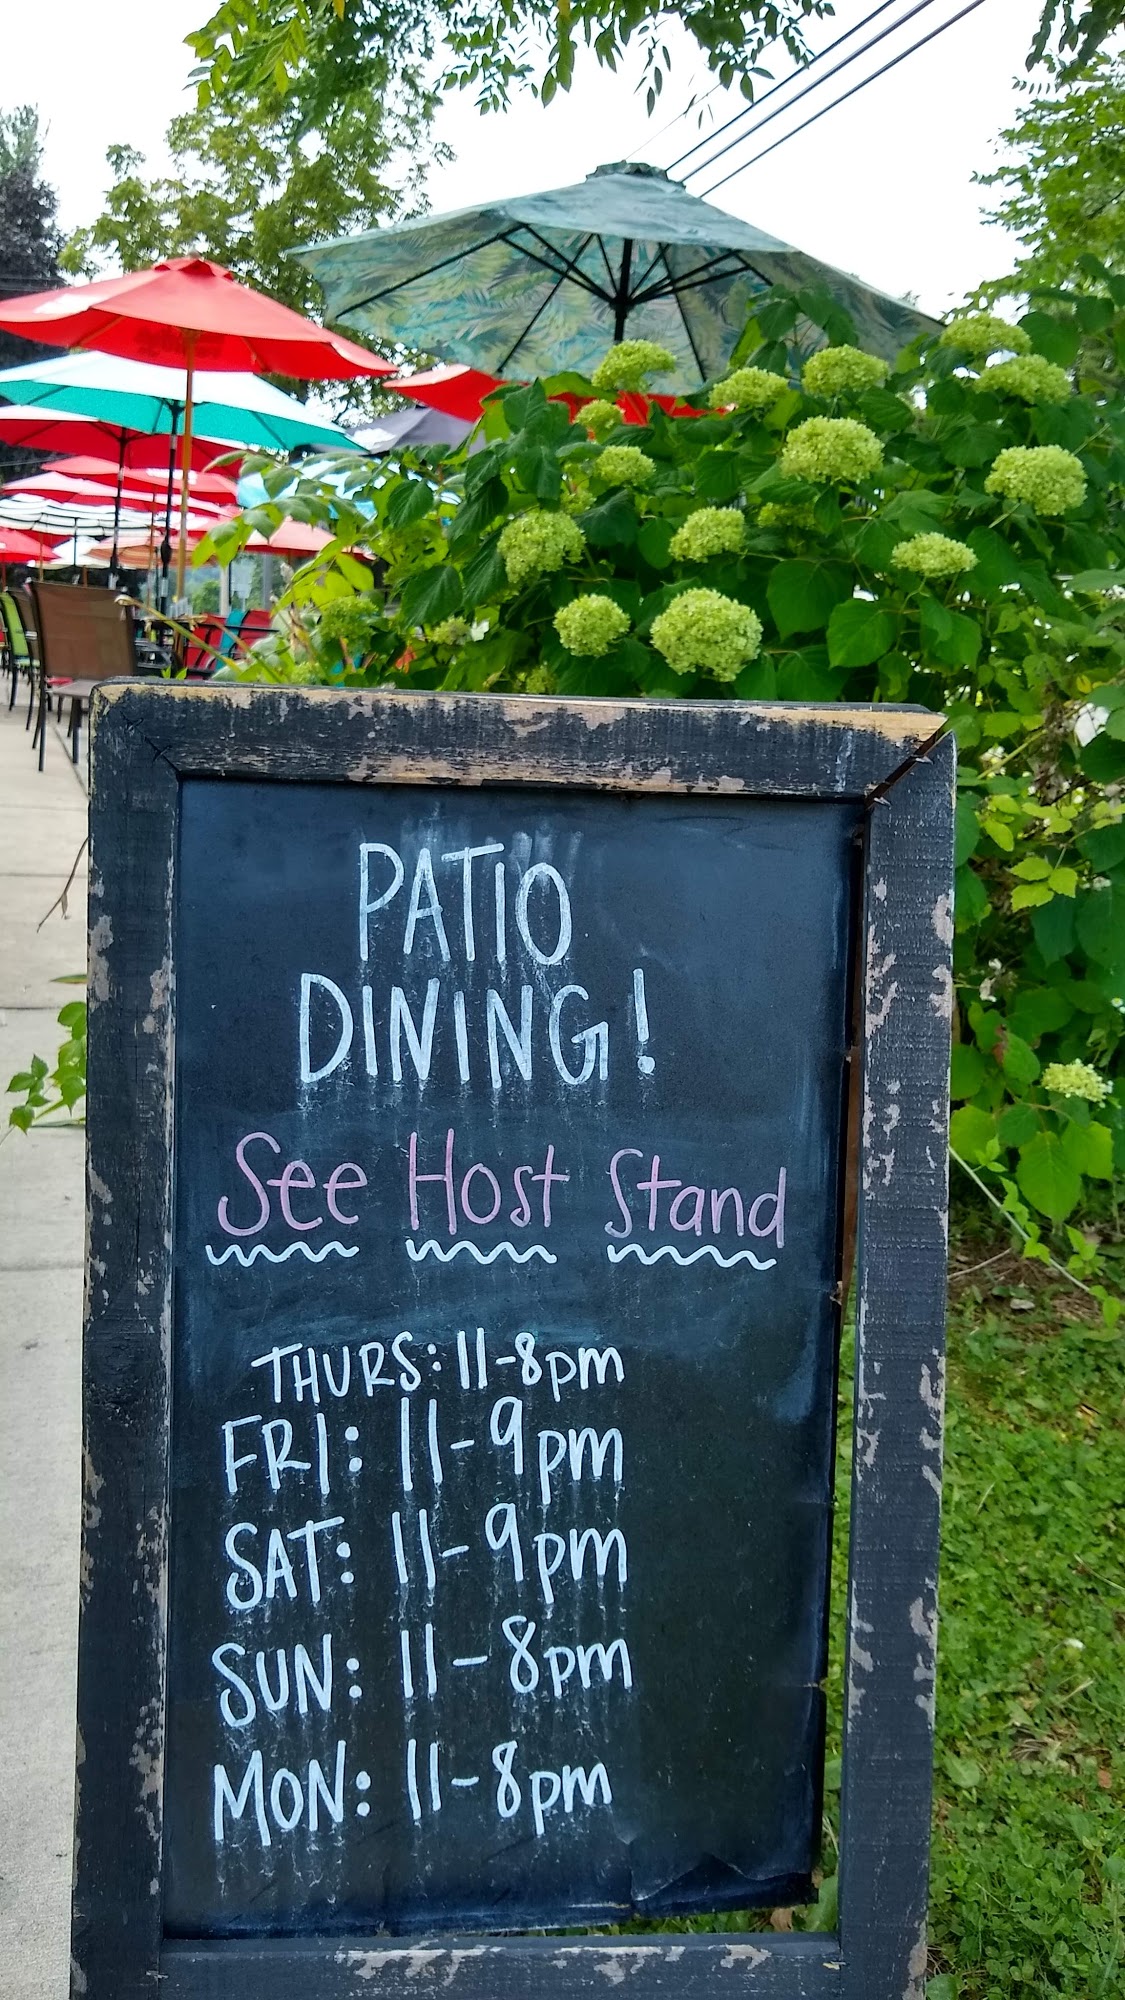 PATIO
DINING!
See Host Stand
THURS: 11-8pm
FRI: 11-9pm
SAT: 11-9pm
SUN: 11-8pm
MON: 11-8pm